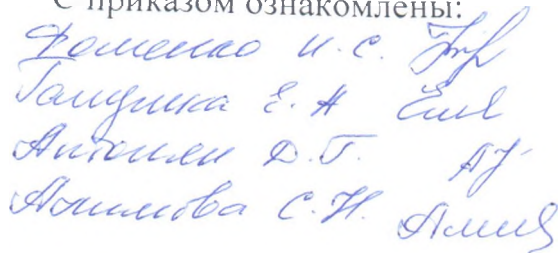 С приказом ознакомлены:
Фоменко И. С.
Галушка Е. А
Антонян Д. Г.
Акимова С. Н.